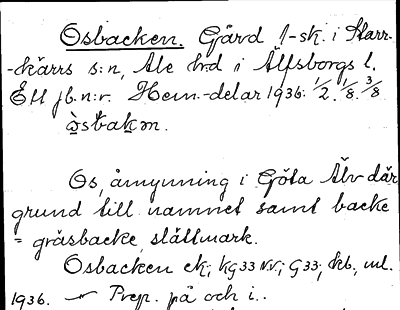 Osbacken. Gård 1-sk. i Starr-
-kärrs s:n, Ale hrd i Älfsborgs l.
Ett jb.n:r. Hem.-delar 1936: 1/2. 1/8. 3/8
òsbakən.
Os, åmynning i Göta Älv där
grund till namnet samt backe
= gräsbacke, slättmark.
Osbacken ek; KG33 NV; G33; kb., ml.
1936. Prep. på och i..